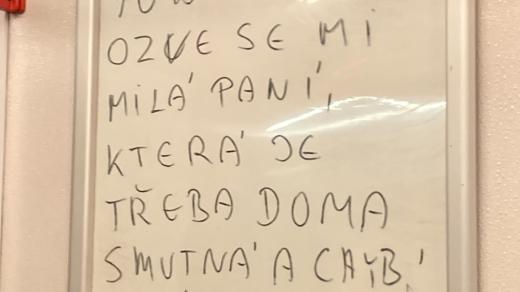 OZVE SE MI
MILÁ PANÍ,
KTERÁ JE
TŘEBA DOMA
SMUTNÁ A CHYBÍ